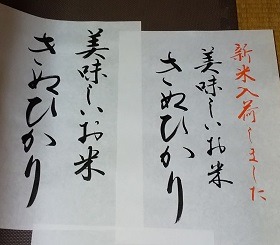 新米入荷しました
美味しいお米
きぬひかり
美味しいお米
きぬひかり